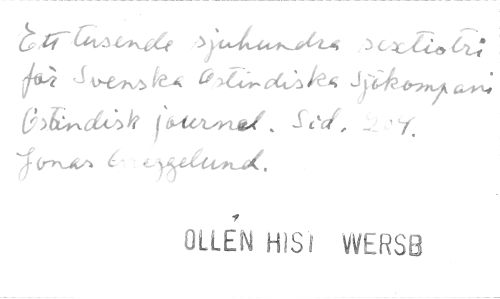 Ett tusende sjuhundra sextiotri
för Svenska Ostindiska Sjökompani
Ostindisk journal. Sid. 204.
Jonas
OLLÉN HIST WERSB